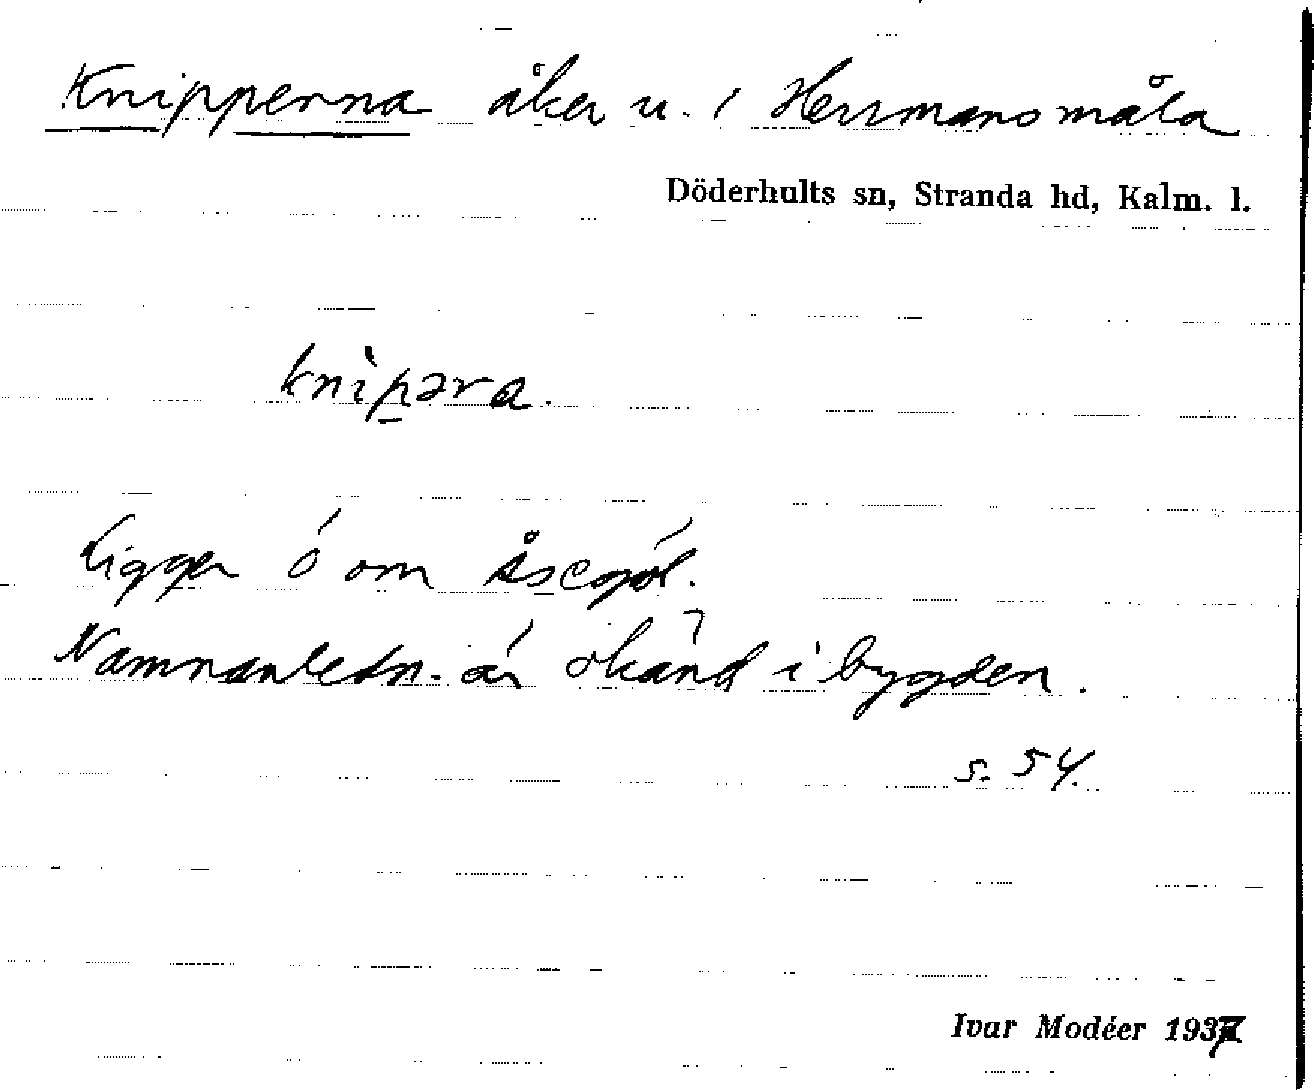 Knipperna åker u. / Herrmansmåla
Döderhults sn, Stranda hd, Kalm. l.
knìp̱əra.
Ligger ö om
Namnanledn. är okänd i bygden.
s. 54.
Ivar Modéer 1937